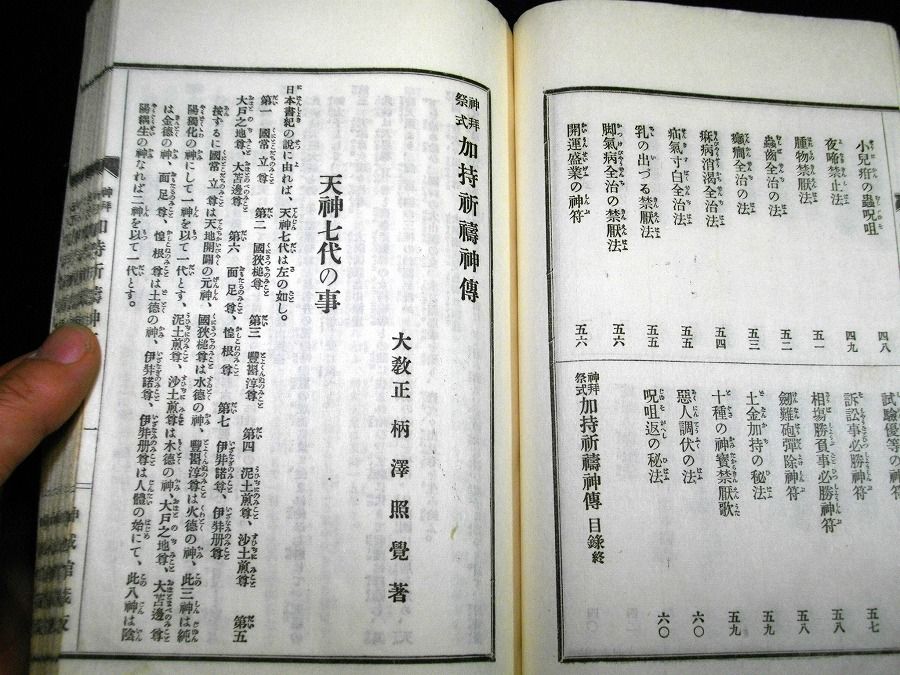 小兒疳の蟲呪咀 四八
夜啼禁止法 四九
腫物禁厭法 五一
蟲齒全治の法 五二
癲癇全治の法 五三
痰病消渴全治法 五四
疝氣寸白全治法 五五
乳の出づる禁厭法 五五
脚氣病全治の禁厭法 五六
開運盛業の神符 五六
試驗優等の神符 五七
訴訟事必勝神符 五八
相塲勝負事必勝神符 五八
劔難砲彈除神符 五八
土金加持の秘法 五九
十種の神寳禁厭歌 五九
惡人調伏の法 六〇
呪咀返の秘法 六〇
神拜祭式 加持祈禱神傳 目錄終
神拜祭式 加持祈禱神傳
大敎正 柄澤照覺著
天神七代の事
日本書紀の說に由れば、天神七代は左の如し。
第一 國常立尊 第二 國狹槌尊 第三 豐斟渟尊 第四 泥土煎尊、沙土煎尊 第五
大戸之地尊、大苫邊尊 第六 面足尊、惶根尊 第七 伊弉諾尊、伊弉册尊
按するに國常立尊は天地開闢の元神、國狹槌尊は水德の神、豐斟渟尊は火德の神、此三神は純
陽獨化の神にして一神を以て一代とす、泥土煎尊、沙土煎尊は木德の神、大戸之地尊、大苫邊尊
は金德の神、面足尊、惶根尊は土德の神、伊弉諾尊、伊弉册尊は人體の始にて、此八神は陰
陽耦生の神なれば二神を以て一代とす。